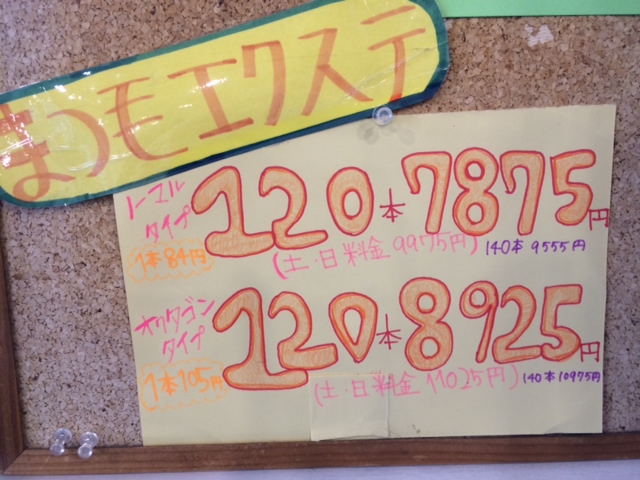 まつもエクステ
ノーマル
タイプ
120本7875円
1本84円
(土・日料金9975円)
140本 9555円
オクタゴン
タイプ
120本8925円
1本105円
(土・日料金11025円)
140本10975円